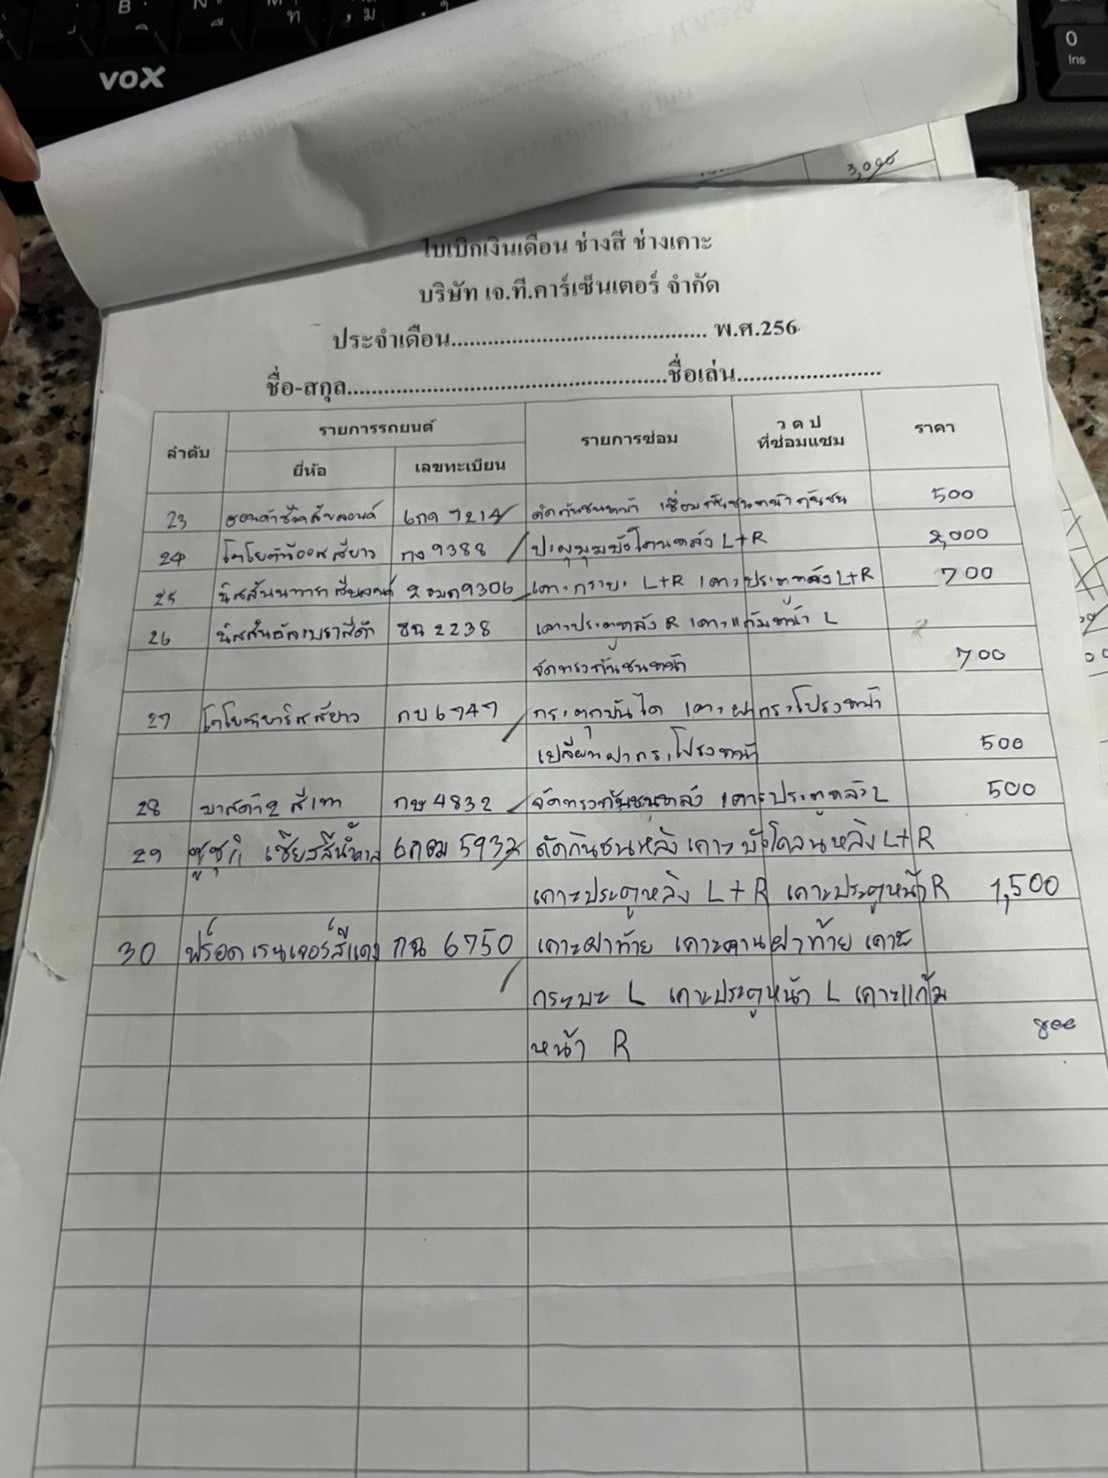 VOX
B
N
M
0
Ins
3,000
ใบเบิกเงินเดือน ช่างสี ช่างเคาะ
บริษัท เจ.ที.คาร์เซ็นเตอร์ จำกัด
ประจำเดือน.......................................... พ.ศ.256
ชื่อ-สกุล....................................................ชื่อเล่น........................
ลำดับ รายการรถยนต์ รายการซ่อม ว ด ป ที่ซ่อมแซม ราคา
ยี่ห้อ เลขทะเบียน
23 ฮอนด้าซีวิคสีบลอนด์ 6กด 7214 ดัดกันชนหน้า เชื่อมกันชนหน้า 500
24 โตโยต้าวีออสสีขาว กง 9388 ปะผุมุมบังโคลนหลัง L+R 2,000
25 นิสสันนาวาราสีบลอนด์ 2ฒด 9306 เคาะกระบะ L+R เคาะประตูหลัง L+R 700
26 นิสสันอัลเมราสีดำ ชฉ 2238 เคาะประตูหลัง R เคาะแก้มหน้า L
จัดทรงกันชนหน้า 700
27 โตโยต้ายาริสสีขาว กบ 6747 กระตุกบันได เคาะฝากระโปรงหน้า
เปลี่ยนฝากระโปรงหน้า 500
28 มาสด้า2 สีเทา กษ 4832 จัดทรงกันชนหลัง เคาะประตูหลัง L 500
29 ซูซูกิ เซียสสีน้ำตาล 6กฒ 5932 ดัดกันชนหลัง เคาะบังโคลนหลัง L+R
เคาะประตูหลัง L+R เคาะประตูหน้า R 1,500
30 ฟร์อดเรนเจอร์สีแดง กฉ 6750 เคาะฝาท้าย เคาะคานฝาท้าย เคาะ
กระบะ L เคาะประตูหน้า L เคาะแก้ม
หน้า R 800